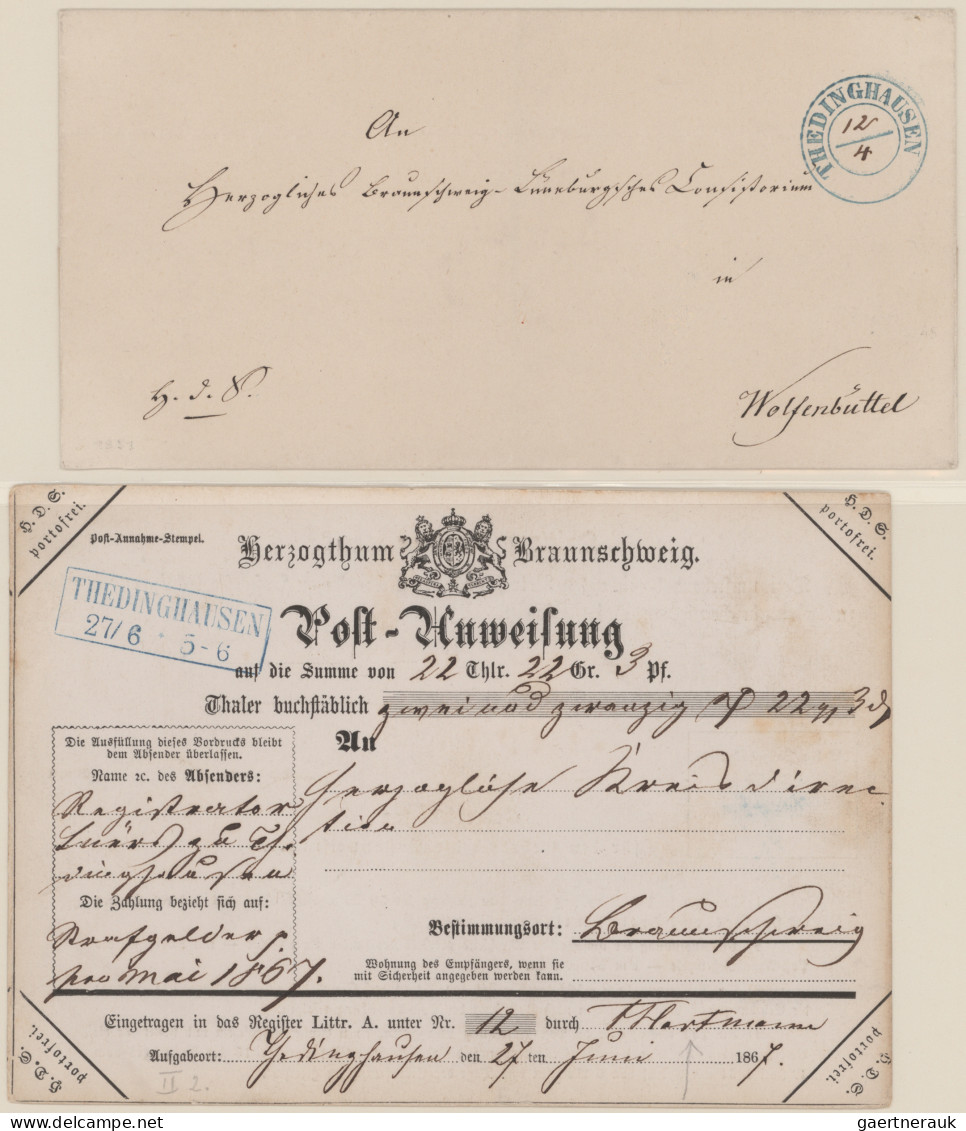 THEDINGHAUSEN
12/4
An
Herzogliches Braunschweig-Lüneburgisches Consistorium
in
H. d. S.
Wolfenbüttel
H. D. S.
portofrei.
H. D. S.
portofrei.
Post-Annahme-Stempel.
Herzogthum Braunschweig.
THEDINGHAUSEN
27/6 * 5-6
Post-Anweisung
auf die Summe von 22 Thlr. 22 Gr. 3 Pf.
Thaler buchstäblich zwei und zwanzig 22 3
Die Ausfüllung dieses Vordrucks bleibt
dem Absender überlassen.
Name ꝛc. des Absenders:
Registrator
Lüers zu Th
dinghausen
Die Zahlung bezieht sich auf:
Strafgelder p.
pro Mai 1867.
An
Herzogliche Kreisdirec
tion
Bestimmungsort: Braunschweig
Wohnung des Empfängers, wenn sie
mit Sicherheit angegeben werden kann.
Eingetragen in das Register Littr. A. unter Nr. 12 durch Hartmann
Aufgabeort: Thedinghausen den 27 ten Juni 1867.
H. D. S.
portofrei.
H. D. S.
portofrei.
II 2.
gaertnerauk @ delcampe.net